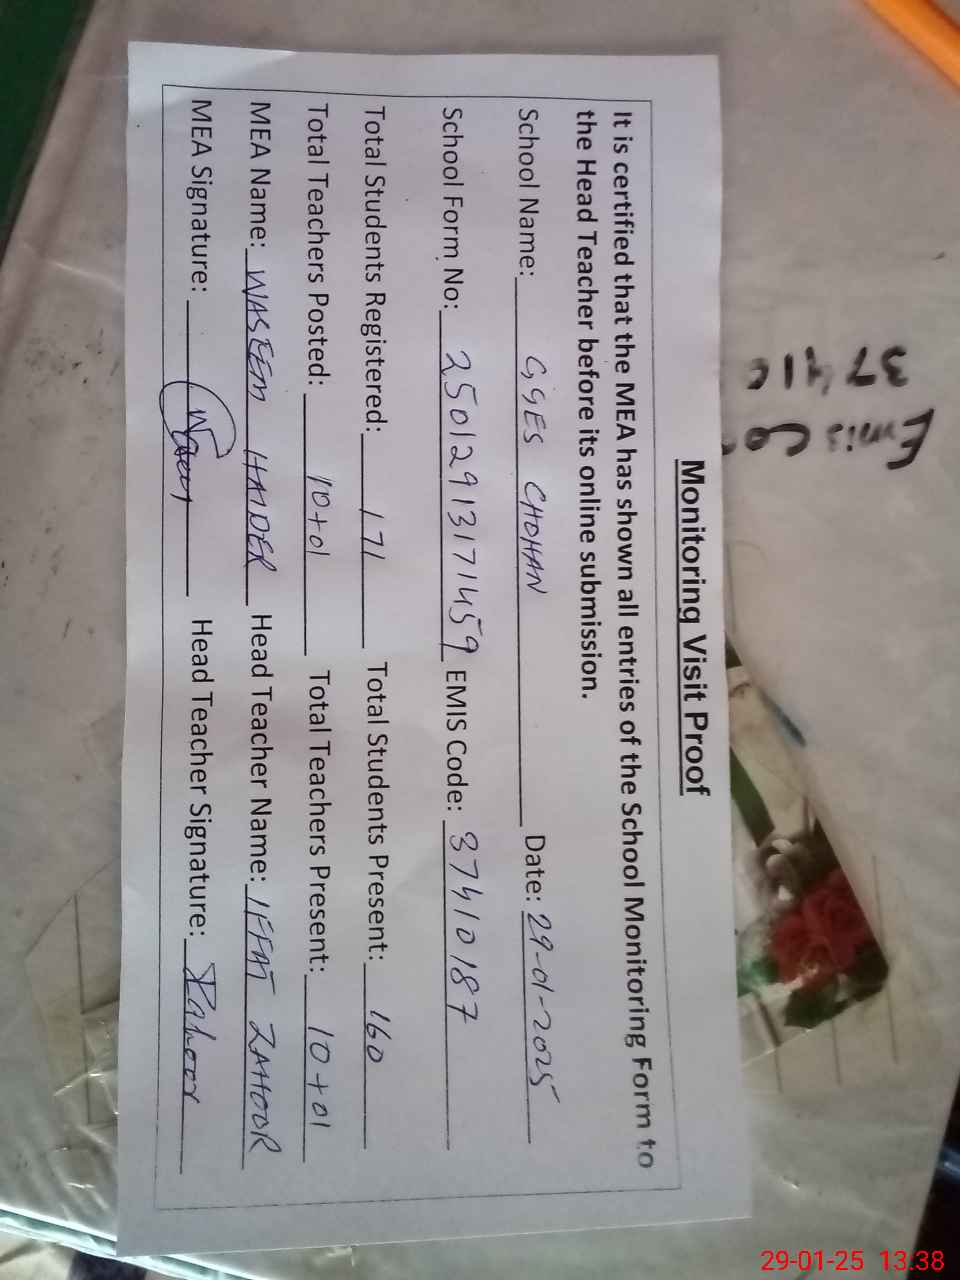 Monitoring Visit Proof
It is certified that the MEA has shown all entries of the School Monitoring Form to
the Head Teacher before its online submission.
School Name: GGES CHOHAN Date: 29-01-2025
School Form No: 25012913171459 EMIS Code: 37410187
Total Students Registered: 171 Total Students Present: 160
Total Teachers Posted: 10+01 Total Teachers Present: 10+01
MEA Name: WASEEM HAIDER Head Teacher Name: IFFAT ZAHOOR
MEA Signature: Head Teacher Signature: Zahoor
Emis Co
3741
29-01-25 13.38